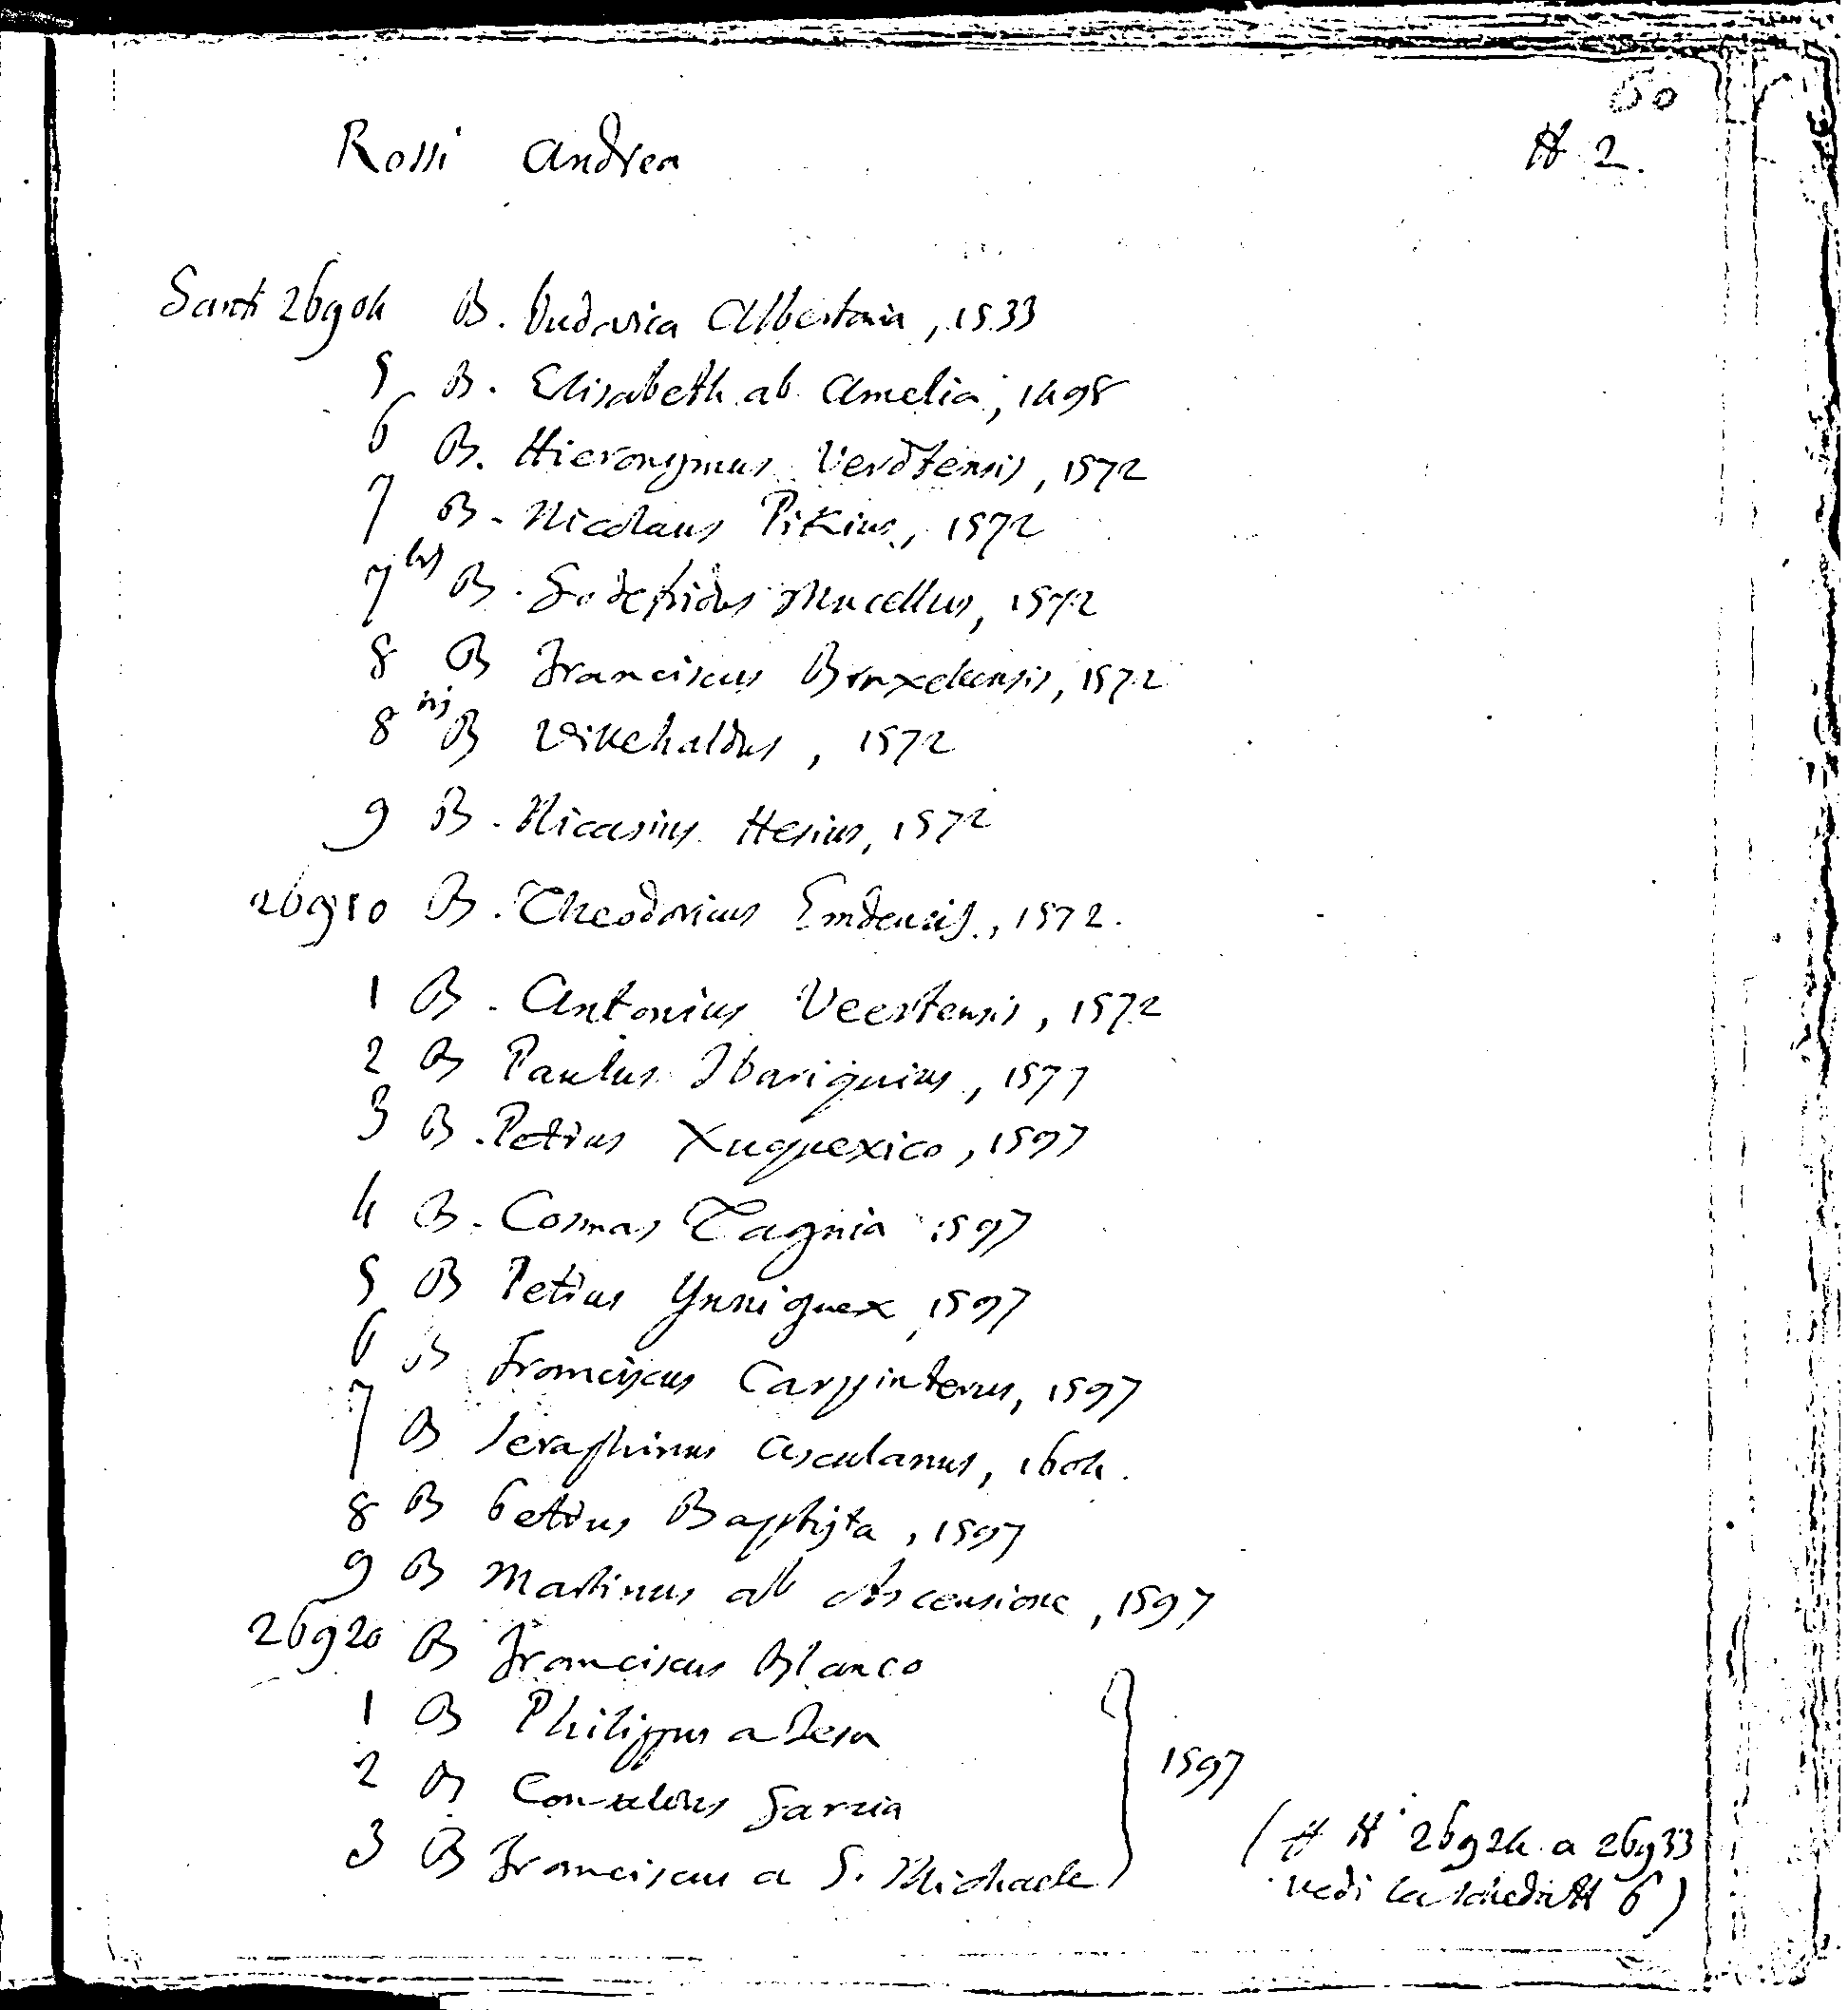 60
Rossi Andrea N 2.
Santi 26904 B. Ludovica Albertonia, 1533
5 B. Elisabeth ab Amelia, 1498
6 B. Hieronymus Verdtensis, 1572
7 B. Nicolaus Pikius, 1572
7 bis B. Godefridus Mucellus, 1572
8 B Franciscus Bruxellensis, 1572
8 bis B Villehaldus, 1572
9 B. Nicasius Hesius, 1572
26910 B. Theodoricus Emdensis, 1572.
1 B. Antonius Veertensis, 1572
2 B Paulus Ibariquius, 1577
3 B. Petrus Xuquexico, 1597
4 B. Cosmas Tagnia 1597
5 B Petrus Ynniguex, 1597
6 B Franciscus Carpinterus, 1597
7 B Seraphinus Asculanus, 1604.
8 B Petrus Baptista, 1597
9 B Martinus ab Ascensione, 1597
26920 B Franciscus Blanco
1 B Philippus a Iesu
2 B Consalvus Garzia
1597
3 B Franciscus a S. Michaele
(N N 26924 a 26933
vedi la scheda N 6)